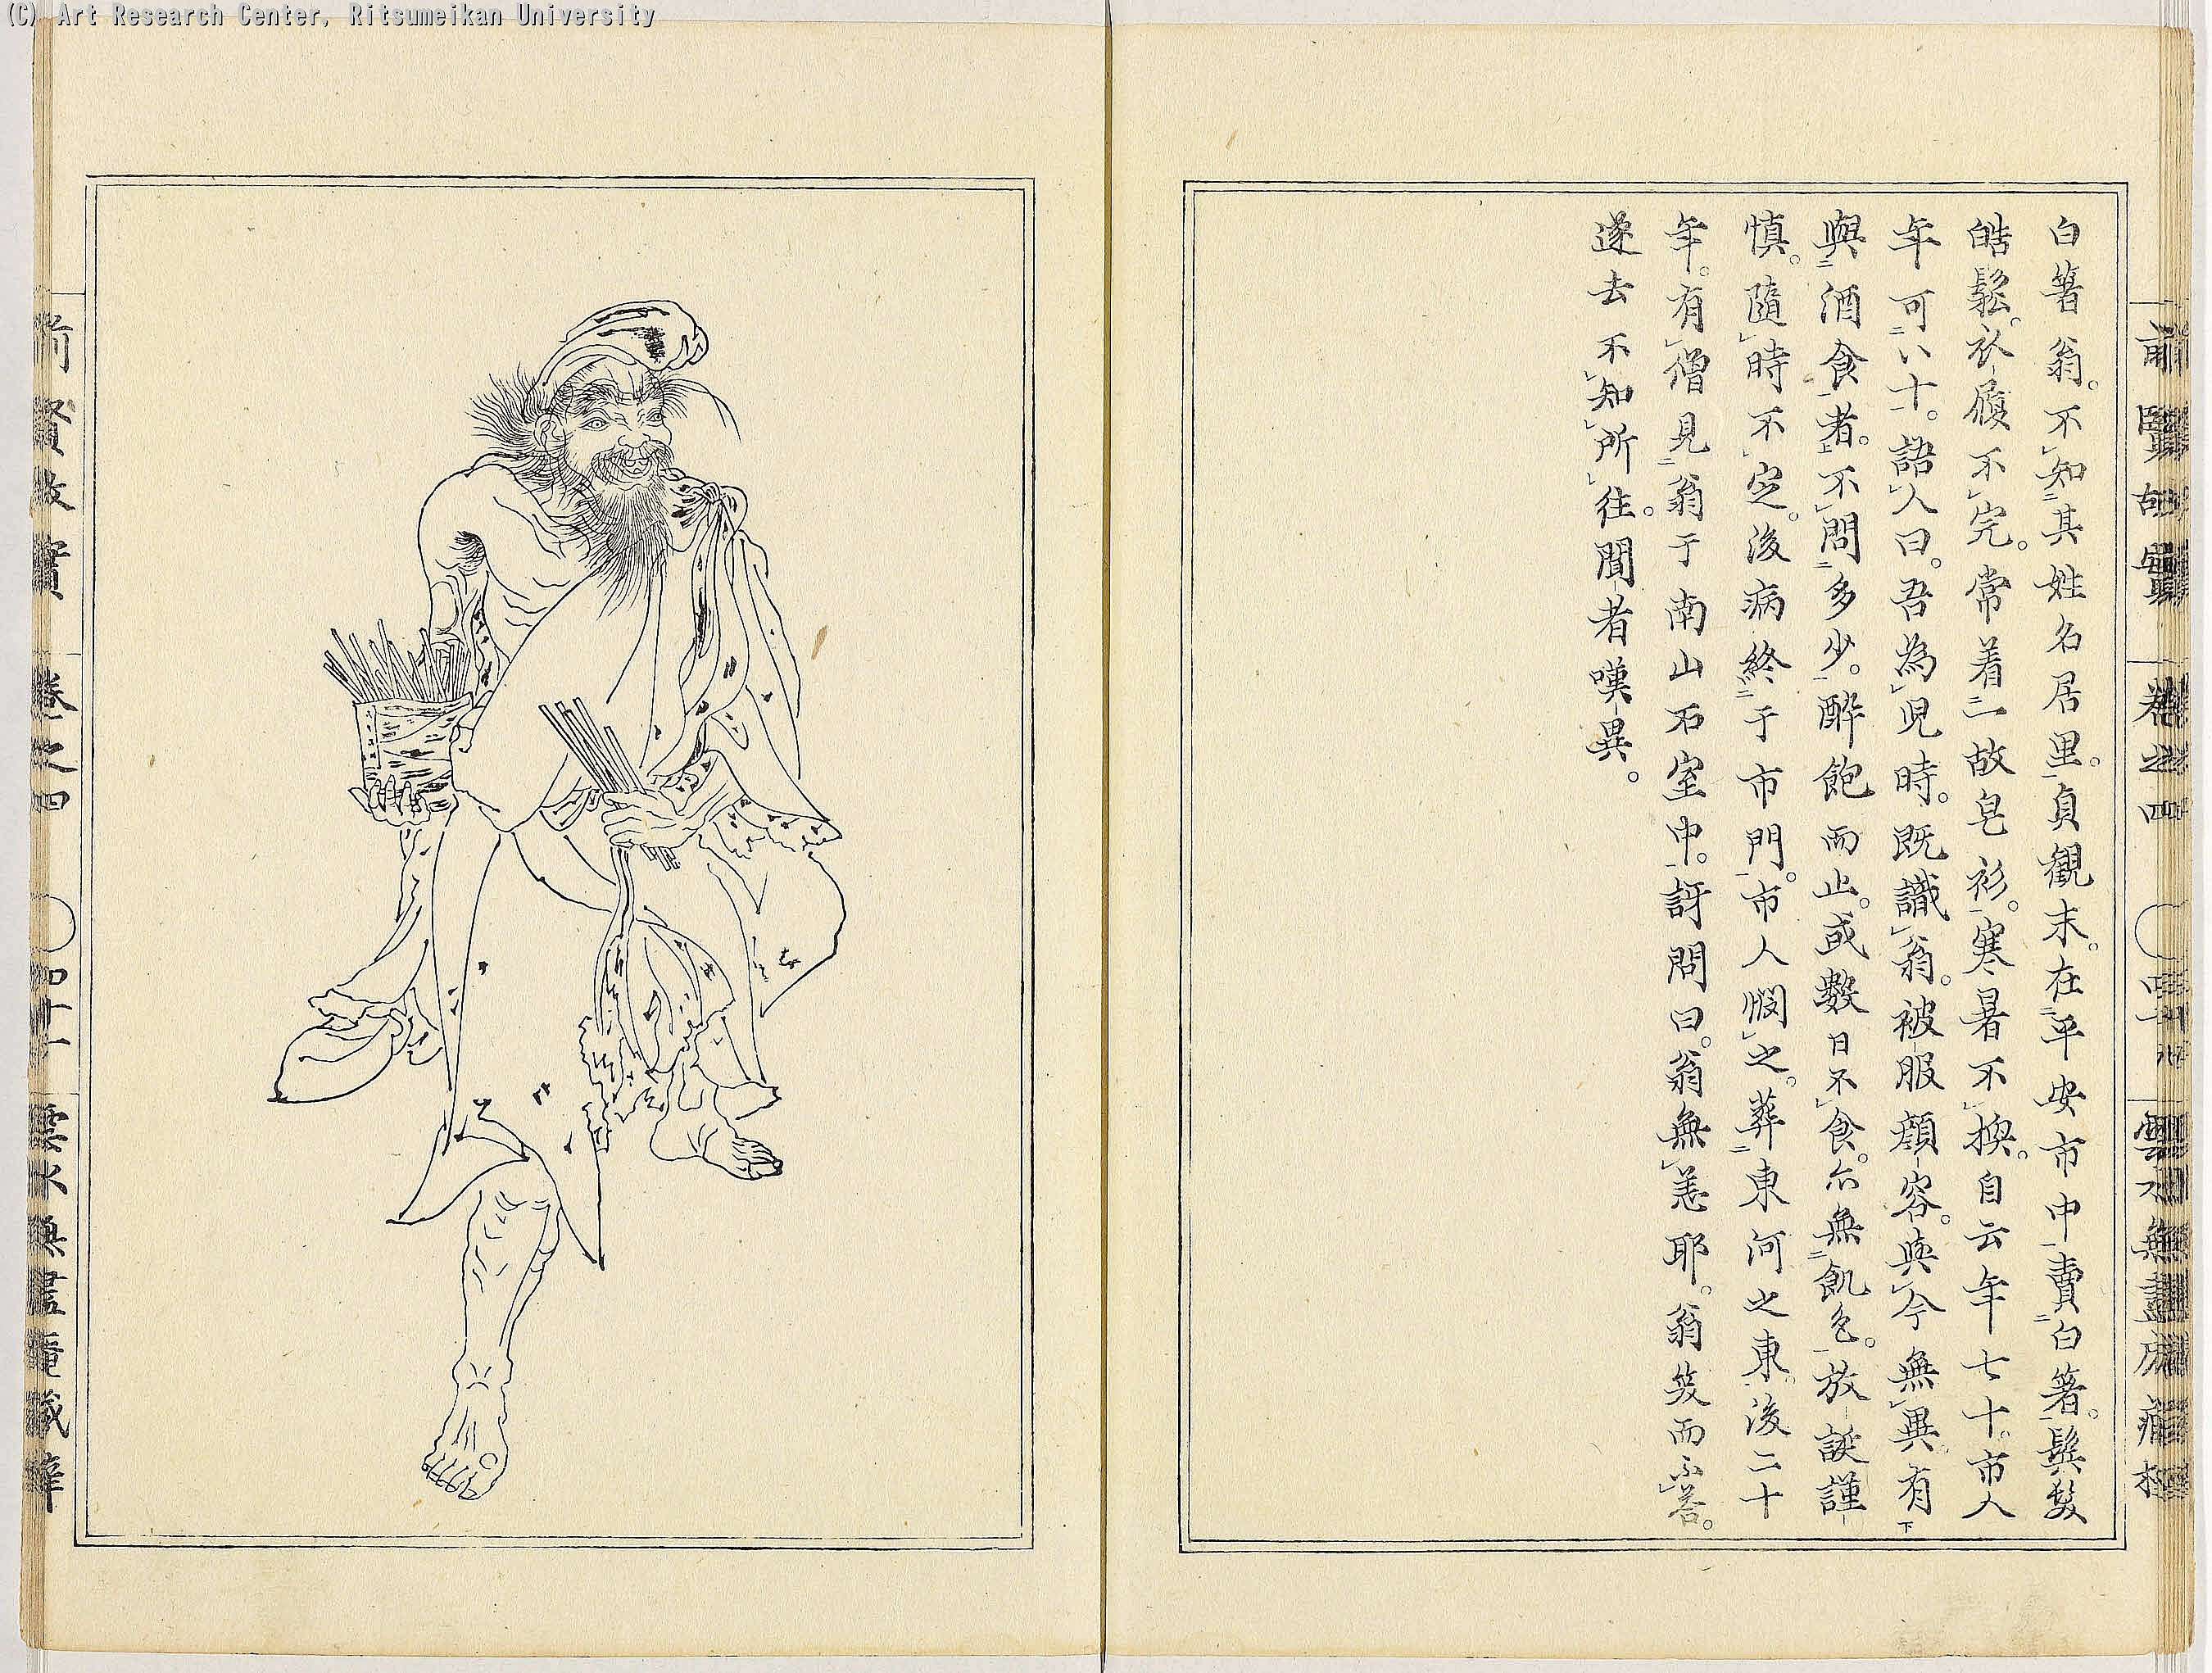 (C) Art Research Center, Ritsumeikan University
前賢故實 卷之四 雲水無盡庵藏梓
白箸翁。不知其姓名居里。貞観末。在平安市中賣白箸。鬂髮
皓鬆。衣履不完。常着一故皂衫。寒暑不換。自云年七十。市人
年可八十。語人曰。吾為児時。既識翁。被服顔容。與今無異。有
與酒食者。不問多少。醉飽而止。或數日不食。亦無飢色。放誕謹
慎。隨時不定。後病終于市門。市人憫之。葬東河之東。後二十
年。有僧見翁于南山石室中。訝問曰。翁無恙耶。翁笑而不答。
遂去不知所往。聞者嘆異。
前賢故實 卷之四 四十一 雲水無盡庵藏梓